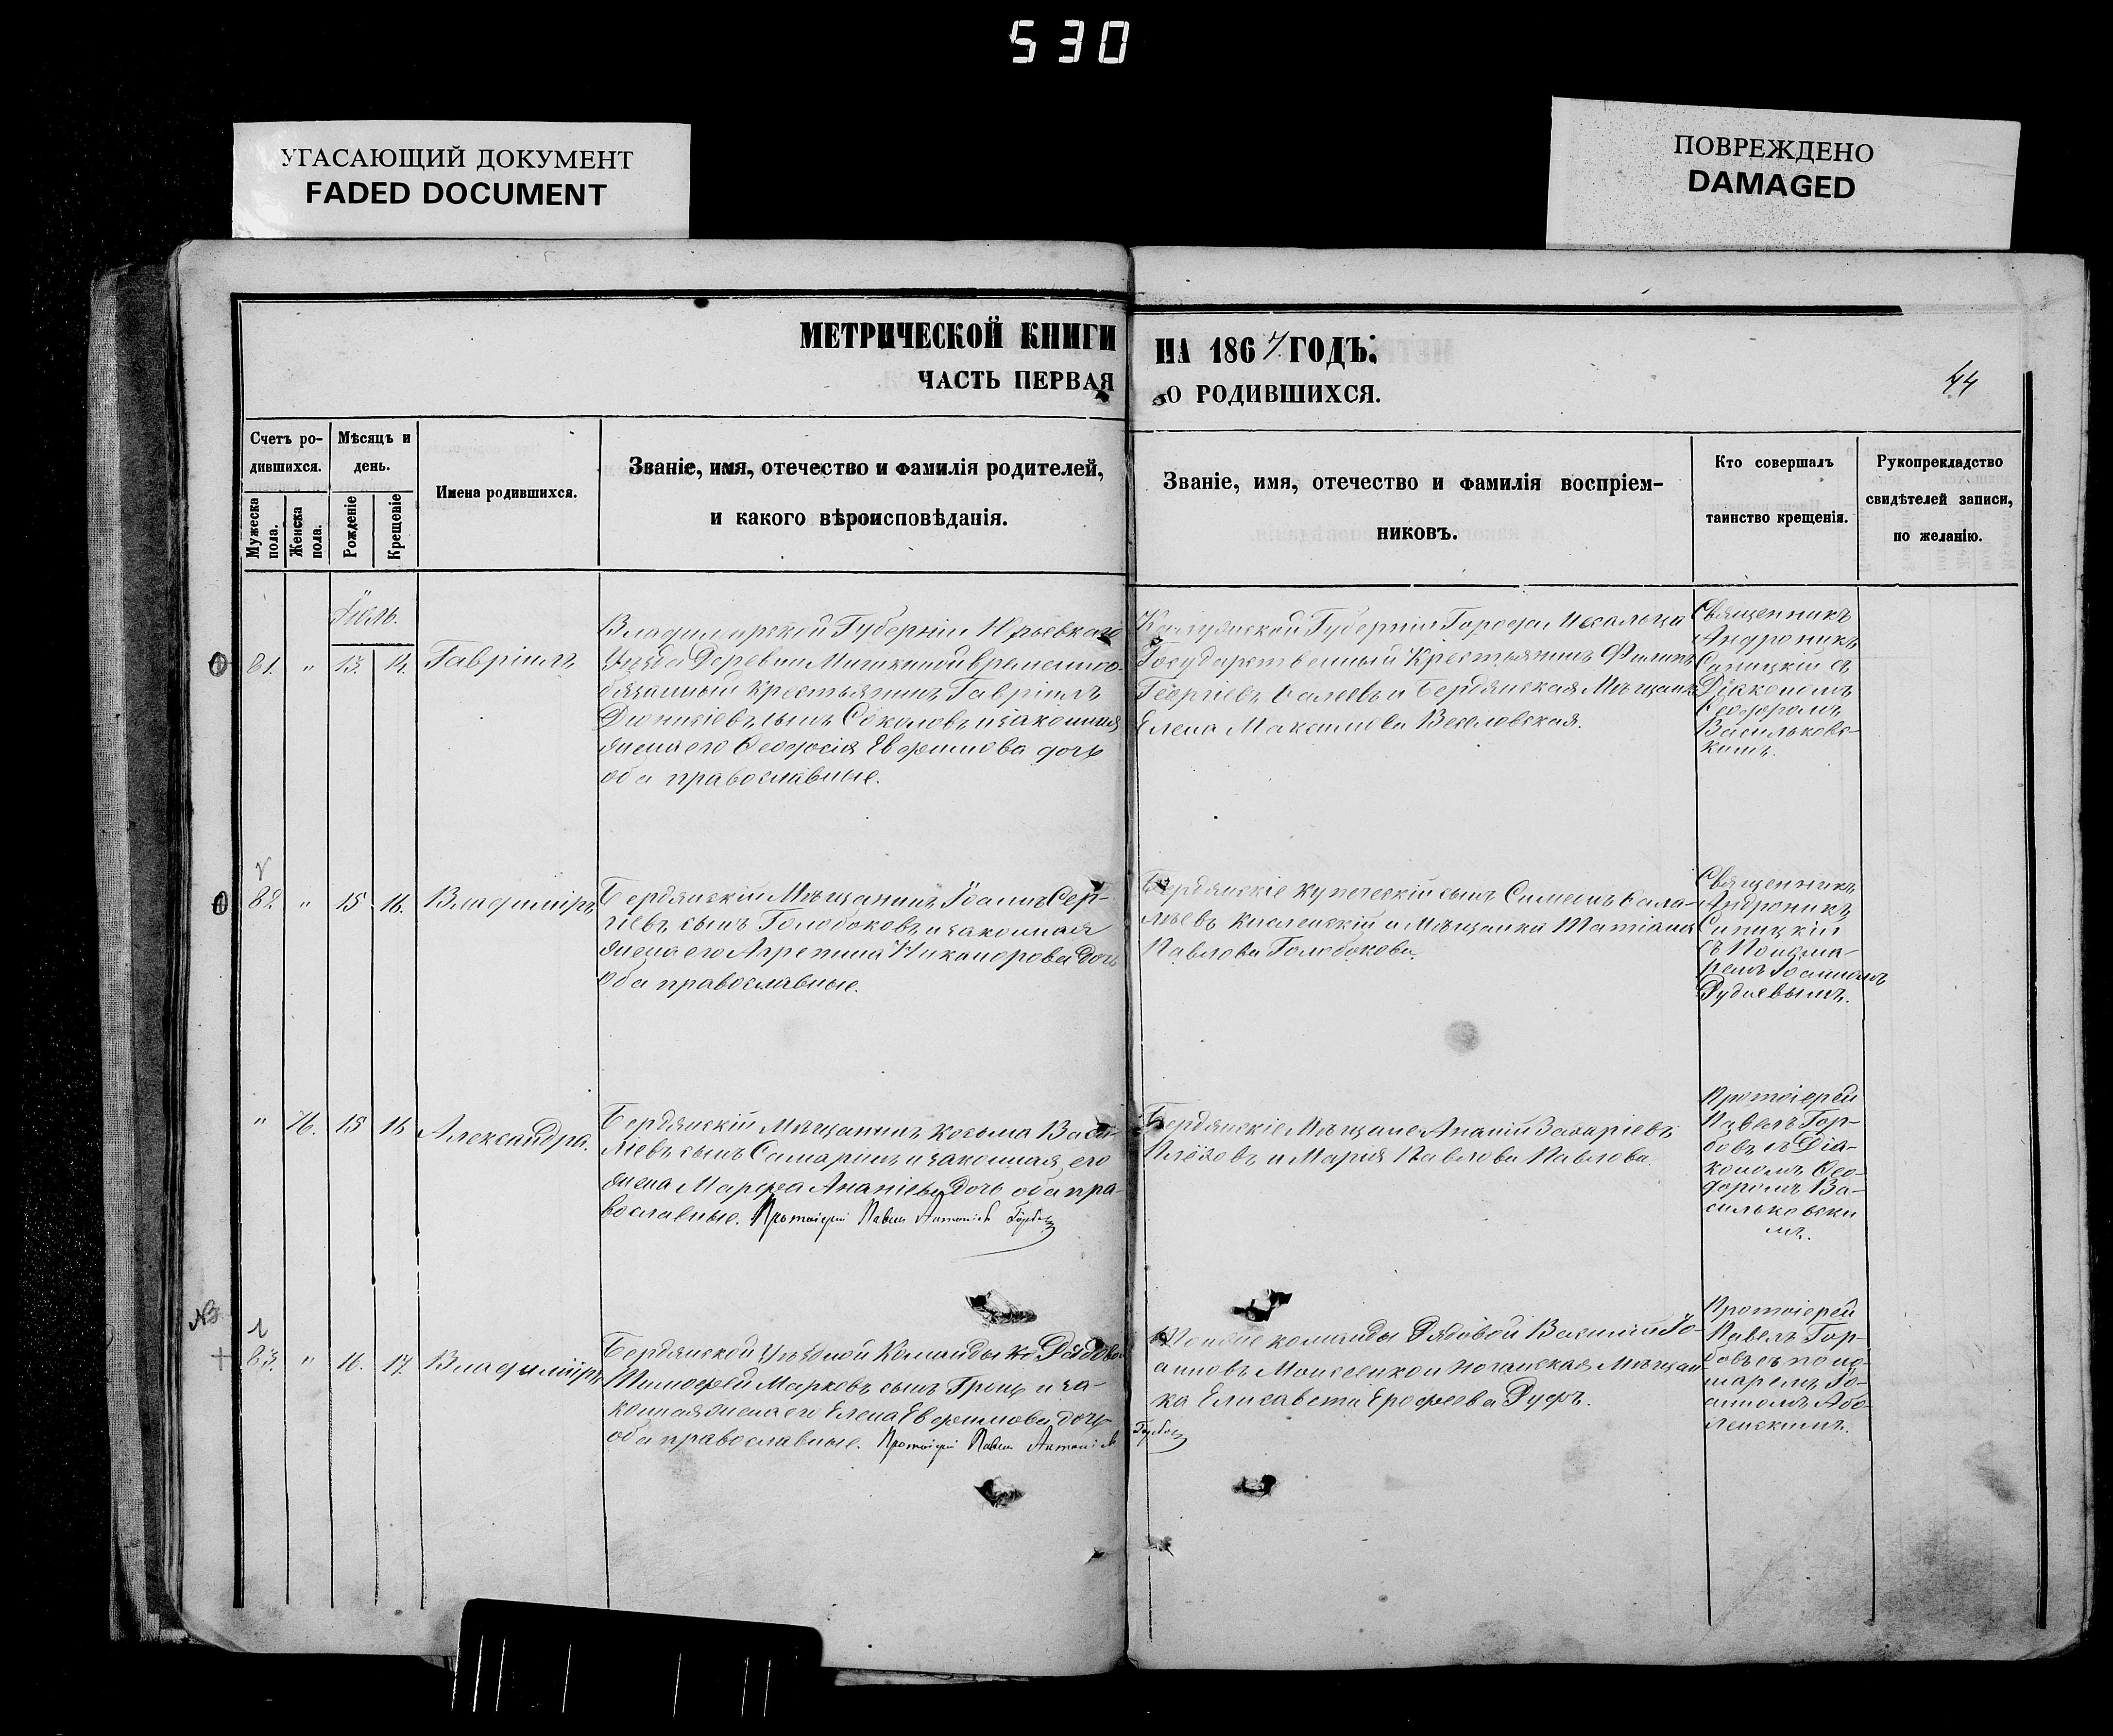 530
УГАСАЮЩИЙ ДОКУМЕНТ
FADED DOCUMENT
ПОВРЕЖДЕНО
DAMAGED
МЕТРИЧЕСКОЙ КНИГИ НА 1867 ГОДЪ.
ЧАСТЬ ПЕРВАЯ О РОДИВШИХСЯ.
44
Счетъ ро-
дившихся.
Мужеска пола.
Женска пола.
Мѣсяцъ и
день.
Рожденіе
Крещеніе
Имена родившихся.
Званіе, имя, отечество и фамилія родителей,
и какого вѣроисповѣданія.
Званіе, имя, отечество и фамилія воспріем-
никовъ.
Кто совершалъ
таинство крещенія.
Рукоприкладство
свидѣтелей записи,
по желанію.
Іюль.
81. " 13. 14. Гавріилъ
Владимірской Губерніи Юрьевскаго
Уѣзда Деревни временно-
обязанный крестьянинъ Гавріилъ
Діонисіевъ сынъ Соколовъ и законная
жена его Ѳеодосія Евфимова дочь
оба православные.
Калужской Губерніи Города
Государственный Крестьянинъ Филипъ
Георгіевъ и Бердянская Мѣщанка
Елена Максимова Веселовская.
Священникъ
Андроникъ
Синицкій съ
Діакономъ
Ѳеодоромъ
Васильковс-
кимъ.
82. " 15 16. Владиміръ
Бердянскій Мѣщанинъ Іоаннъ Сер-
гіевъ сынъ Голобоковъ и законная
жена его Агрепина Никанорова дочь
оба православные.
Бердянскіе купеческій сынъ Симеонъ
и Мѣщанка Татіана
Павлова Голобокова.
Священникъ
Андроникъ
Синицкій
съ Понома-
ремъ Іоанномъ
Рудневымъ.
" 76. 15 16 Александра.
Бердянскій Мѣщанинъ Косьма Васи-
ліевъ сынъ Самаринъ и законная его
жена Марфа Ананіева дочь оба пра-
вославные. Протоіерей Павелъ Антоніевъ Горбовъ
Бердянскіе Мѣщане Ананій Захаріевъ
и Марія Павлова Павлова.
Протоіерей
Павелъ Гор-
бовъ съ Діа-
кономъ Ѳео-
доромъ Ва-
сильковски
мъ.
NB
83. " 16. 17. Владиміръ
Бердянской Уѣздной Команды Рядовой
Тимофей Марковъ сынъ и за-
конная жена его Елена Евфимова дочь
оба православные. Протоіерей Павелъ Антоніевъ Горбовъ
команды Рядовой Василій Іо-
анновъ и Ногайская Мѣщан
ка Елисавета Ерофеева
Протоіерей
Павелъ Гор-
бовъ съ поно-
маремъ Іо-
анномъ Або-
ленскимъ.